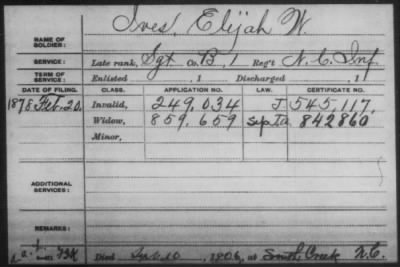 NAME OF SOLDIER: Ives, Elijah W.
SERVICE: Late rank, Sgt Co. B, 1 Reg't N.C. Inf.
TERM OF SERVICE: Enlisted , 1 Discharged , 1
DATE OF FILING. CLASS. APPLICATION NO. LAW. CERTIFICATE NO.
1878 Feb. 20. Invalid, 249.034 J 545.117.
Widow, 859.659 842860
Minor,
ADDITIONAL SERVICES:
REMARKS:
Died 10, 1906, at South Creek N.C.